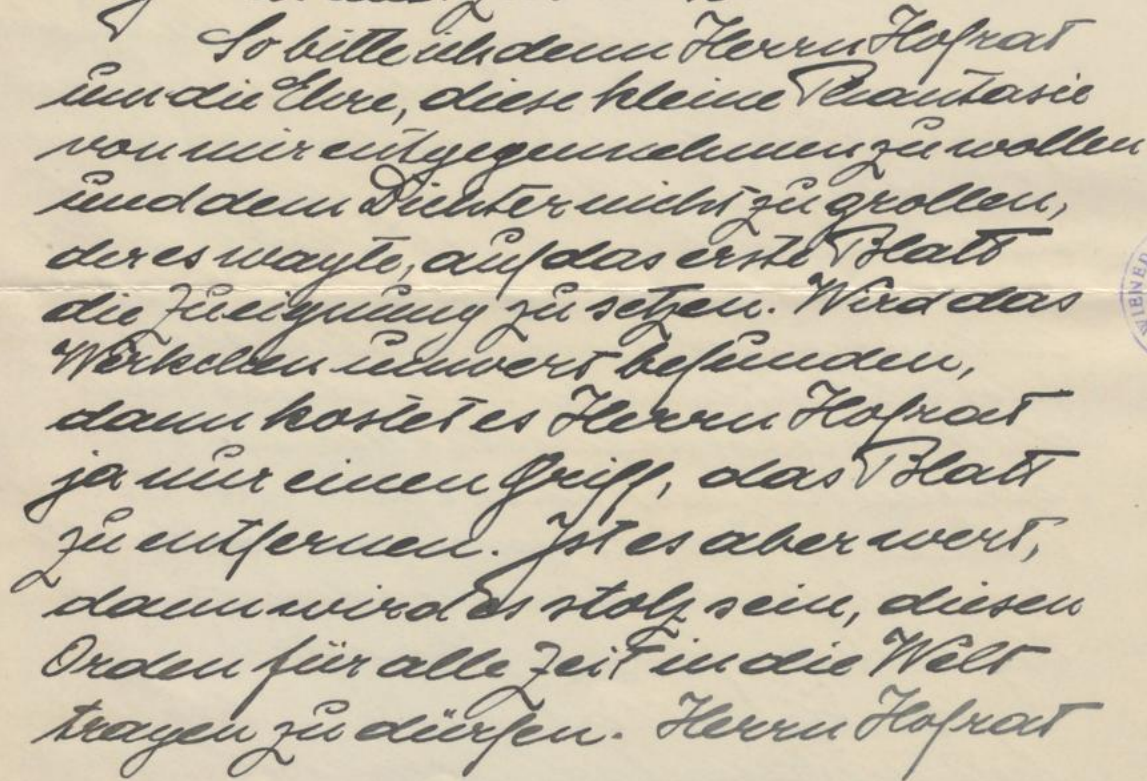 So bitte ich denn Herrn Hofrat
um die Ehre, diese kleine Phantasie
von mir entgegennehmen zu wollen
und dem Dichter nicht zu grollen,
der es wagte, auf das erste Blatt
die Zueignung zu setzen. Wird das
Werkchen unwert befunden,
dann kostet es Herrn Hofrat
ja nur einen Griff, das Blatt
zu entfernen. Ist es aber wert,
dann wird es stolz sein, diesen
Orden für alle Zeit in die Welt
tragen zu dürfen. Herrn Hofrat